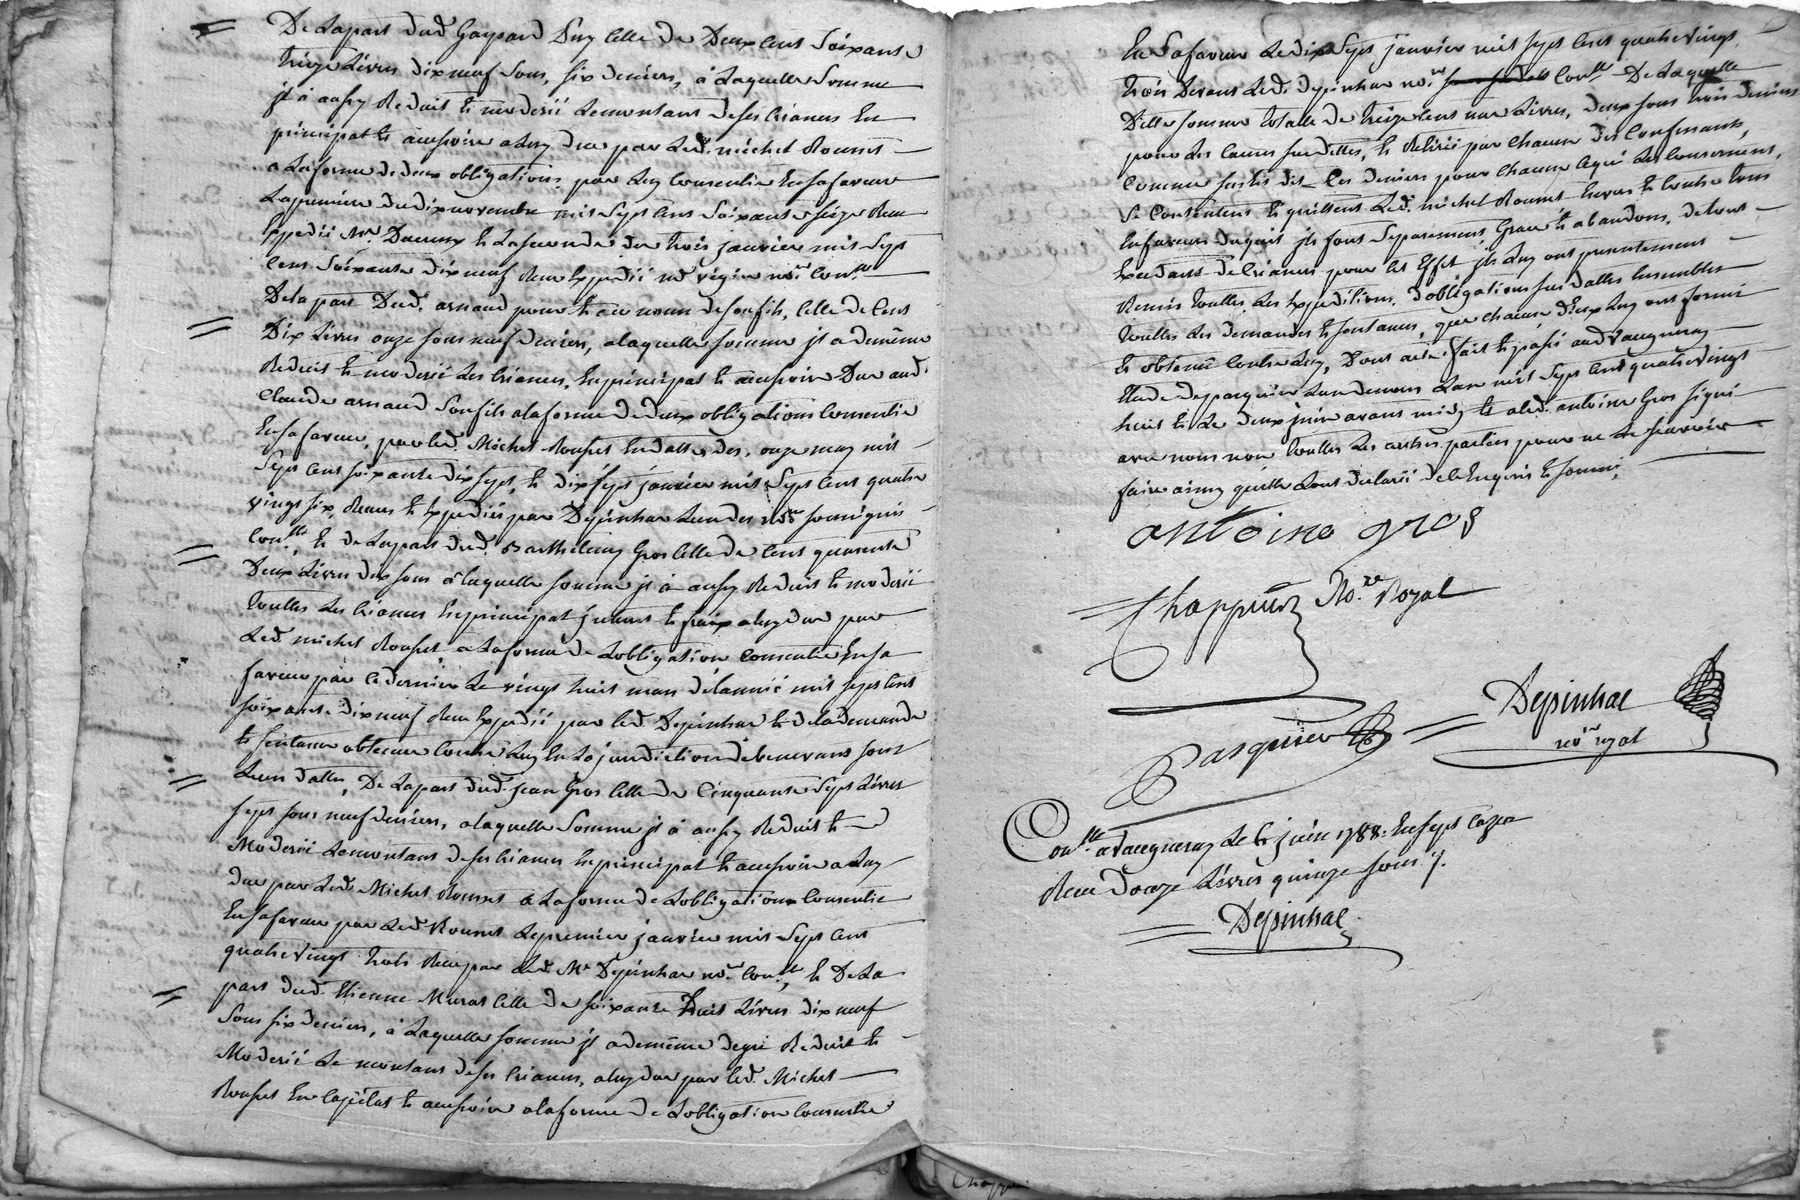 De Lapart dud. Gaspard Puy Celle de Deux Cent Soixante
treize Livres dixneuf Sous, six deniers, a Laquelle Somme
jl à aussy Reduit & moderé Lemontant deses Criances En
principal & accessoire a Luy due par Led. michel Rousset
a Laforme de deux obligations, par Luy Consentie Ensafaveur
Lapremiere du dixnovembre mil Sept Cent Soixante seize Reçue
Me. & Laseconde du trois janvier mil Sept
Cent Soixante dixneuf Reçu Expedié nore. Conllé.
De la part Dud. arnaud pour & au nom de son fils, Celle de Cent
Dix Livres onze sous neuf deniers, alaquelle somme jl a demême
Reduit & moderé Les Criances, En principal & accessoire Due aud.
Claude arnaud Son fils alaforme de deux obligations Consentie
Ensafaveur, par led. Michel Rousset En datte des, onze may mil
Sept Cent soixante dix sept, & dix sept janvier mil Sept Cent quatre
vingt six, Reçues & Expediés par Depinhac Lun des nores. soussignés
Conllé. & de Lapart dud. Barthelemy Gros Celle de Cent quarante
Deux Livres dix sous a laquelle somme jl à aussy Reduit & moderé
touttes Les Criances En principal & fraix aluy due par
Led. michel Rousset, a Laforme de Lobligation Consentie Ensa
faveur par Ce dernier Le vingt huit mars de Lannée mil Sept Cent
soixante dixneuf Reçu Expedié par led. Depinhac & de la demande
& sentence obtenue Contre Luy En La jurisdiction de sous
Leurs dattes, De Lapart dud. jean Gros Celle de Cinquante Sept Livres
Sept sous neuf deniers, a laquelle Somme jl à aussy Reduit &
Moderé Lemontant deses Criances En principal & accessoire a Luy
due par Led. Michel Rousset a Laforme de Lobligation Consentie
Ensafaveur par Led. Rousset Le premier janvier mil Sept Cent
quatrevingt trois Reçue par Led. Me. Depinhac nore. Conllé, & De La
part dud. Etienne Murat Celle de soixante Huit Livres dixneuf
Sous six deniers, à Laquelle somme jl a demême Reduit &
Moderé Le montant de ses Criances, a luy due par led. Michel
Rousset En Capital & accessoire a laforme de Lobligation Consentie
En Safaveur Le dix Sept janvier mil Sept Cent quatrevingt
trois Devant Led. Depinhac nore. Conllé. De Laquelle
Ditte somme totalle de treize Cent une Livres, deux sous trois deniers
pour Les Causes susdittes, & Reliée par Chacun des Confessants,
Comme sus est dit Les deniers pour Chacun Ce qui Les Concernent,
Se Contentent & quittent Led. michel Rousset Envers & Contre tous
En faveur duquel jls font Expressement Grace & abandons, de tout
Excedant de Criances pour Cet Effet jls Luy ont presentement
Remis touttes Les Expeditions, d'obligations sus dattés Ensembles
touttes Les demandes & sentances, que chacun d'eux Luy ont formé
& obtenu Contre Luy, Dont acte, fait & passé aud. vaugneray
Etude de pasquier Lun de nous Lan mil Sept Cent quatrevingt
huit & Le deux juin avant midy & a led. antoine Gros signé
avec nous non touttes Les autres parties pour ne Le Sçavoir
faire ainsy quelles Lont declaré de Ce Enquis & sommé
antoine gros
Chappuis No.re Royal
Pasquier
Depinhac
nore. royal
Conllé. a Vaugneray Le 6 juin 1788. En Sept Cazes
Reçu douze Livres quinze sous.
Depinhac